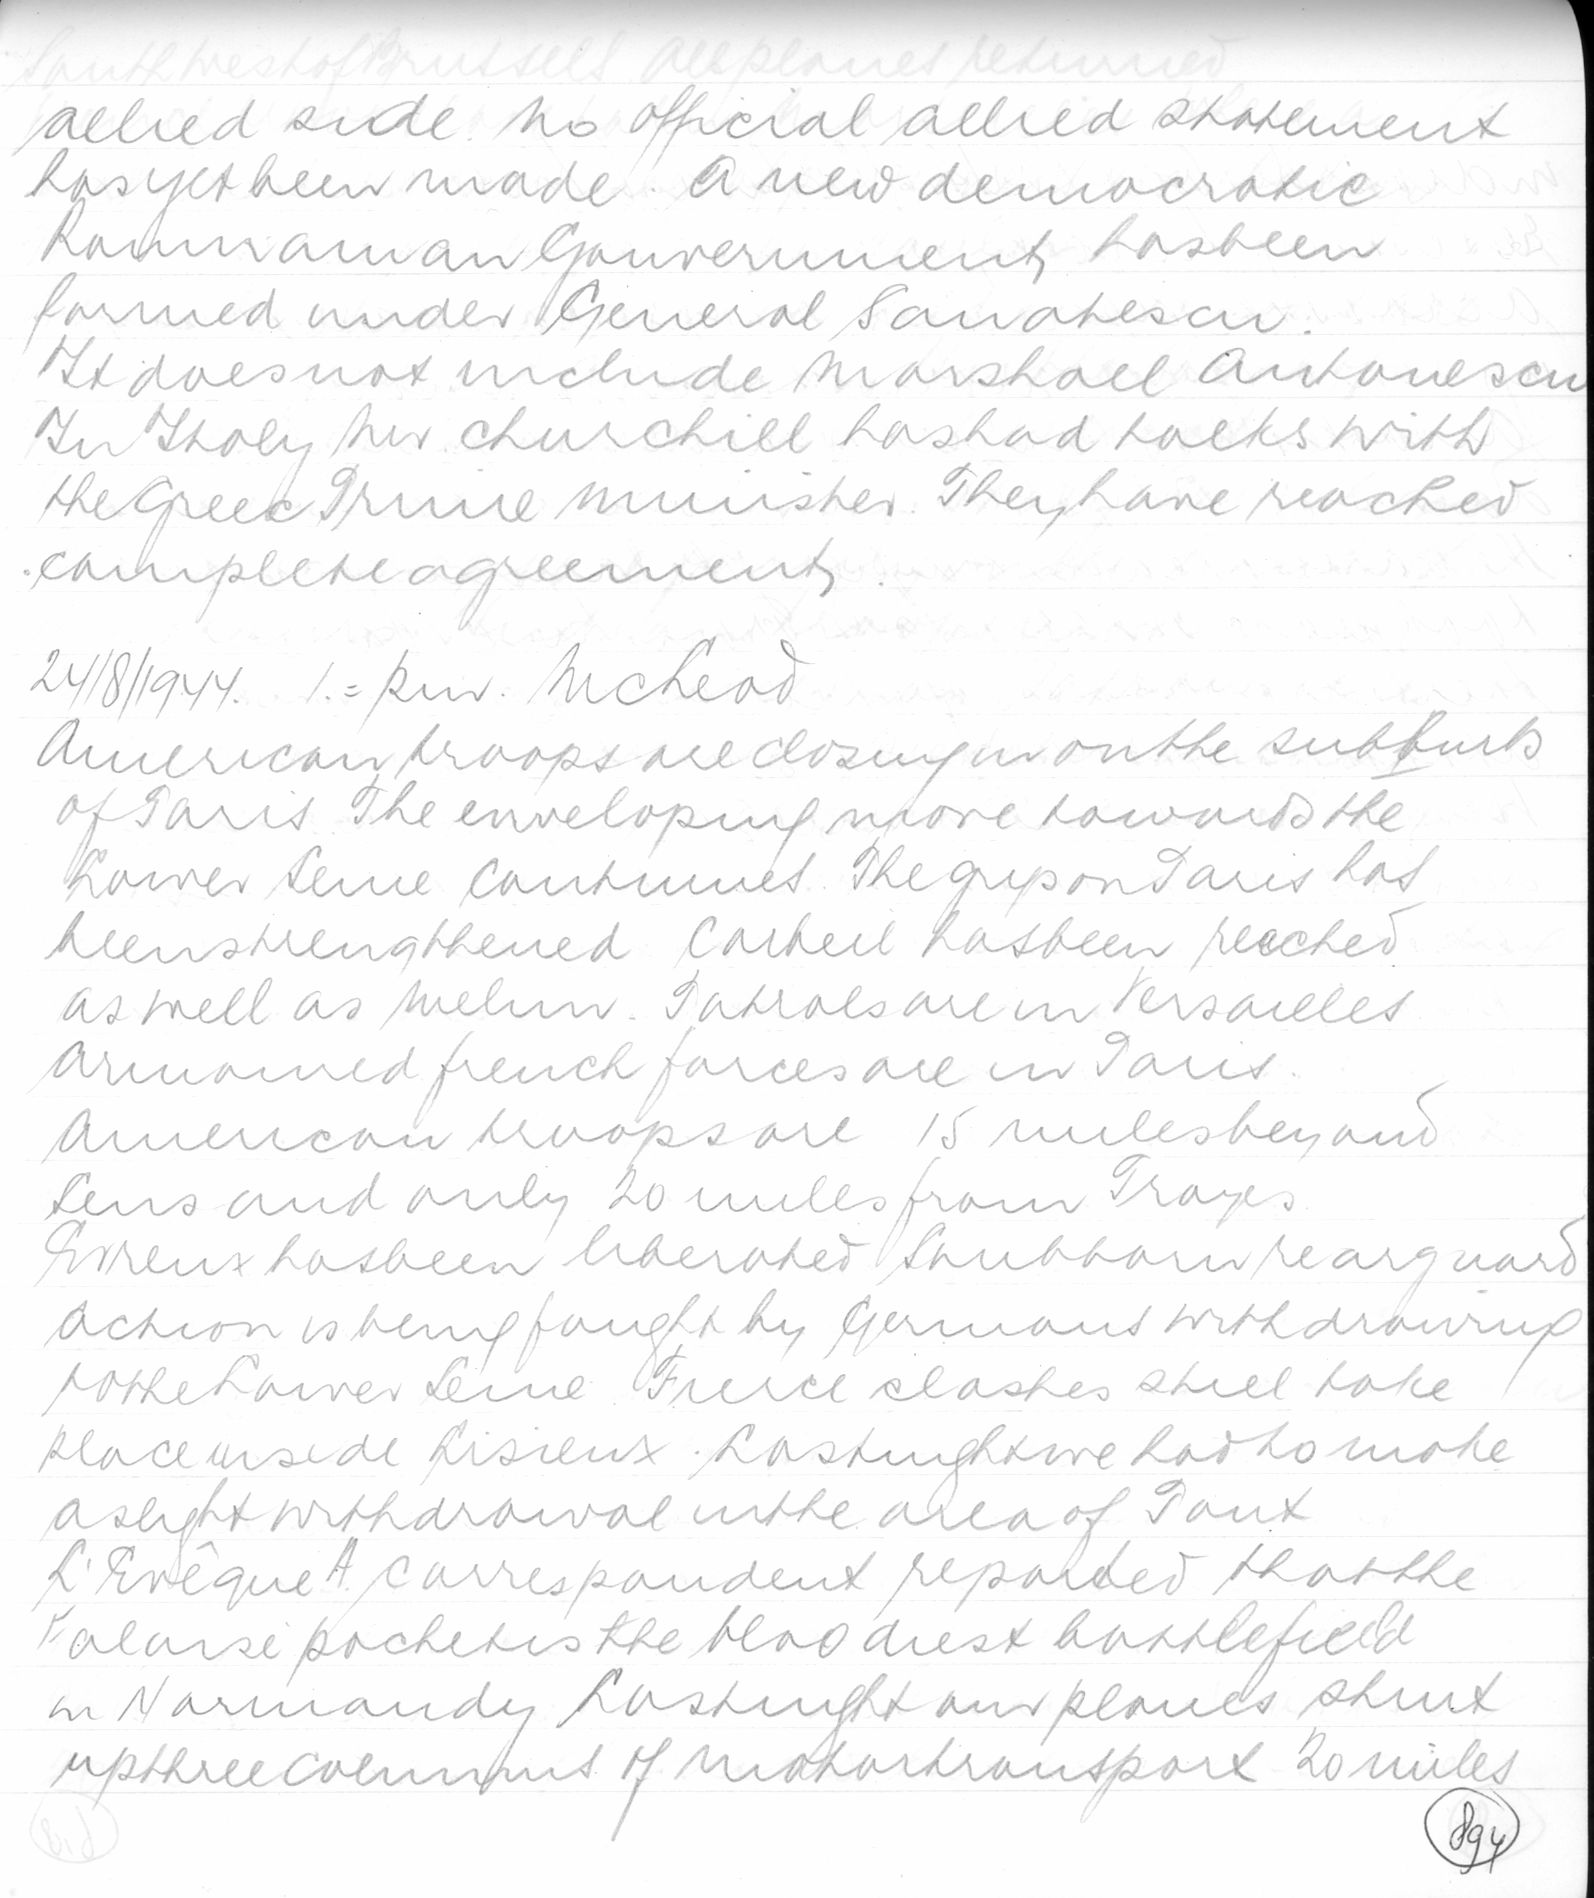 allied side. No official allied statement
has yet been made. A new democratic
Roumanian Gouvernment, has been
formed under General Sanatescu.
It does not include Marshall Antonescu
In Italy Mr Churchill has had talks with
the Greec Prime Minister. They have reached
complete agreement,
24/8/1944. 1.= p.m. McLeod
American troops are closing in on the suburbs
of Paris. The enveloping move towards the
Lower Seine continues. The grip on Paris has
been strengthened Corbeil has been reached
as well as Melun. Patrols are in Versailles
Armoured french forces are in Paris.
American troops are 15 miles beyond
Sens and only 20 miles from Troyes.
Evreux has been liberated Stubborn rearguard
action is being fought by Germans withdrawing
to the Lower Seine. Fierce clashes still take
place inside Lisieux. Last night we had to make
a slight withdrawal in the area of Pont
L'Evêque A. correspondent reported that the
Falaise pocket is the bloodiest battlefield
in Normandy Last night our planes shut
up three columns of motortransport 20 miles
894